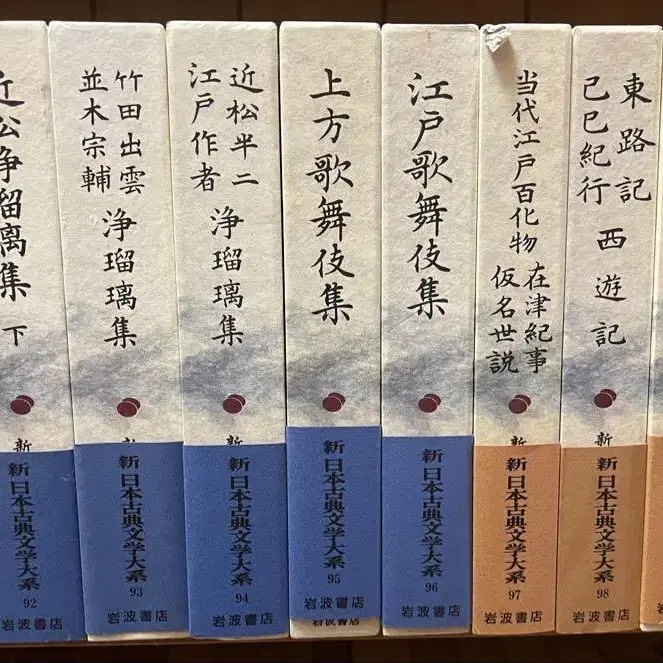 近松浄瑠璃集 下
新
新日本古典文学大系
92
岩波書店
竹田出雲
並木宗輔
浄瑠璃集
新
新日本古典文学大系
93
岩波書店
近松半二
江戸作者
浄瑠璃集
新
新日本古典文学大系
94
岩波書店
上方歌舞伎集
新日本古典文学大系
95
岩波書店
岩波書店
江戸歌舞伎集
新日本古典文学大系
96
岩波書店
当代江戸百化物
在津紀事
仮名世説
新
新日本古典文学大系
97
岩波書店
東路記
己巳紀行
西遊記
新
新日本古典文学大系
98
岩波書店